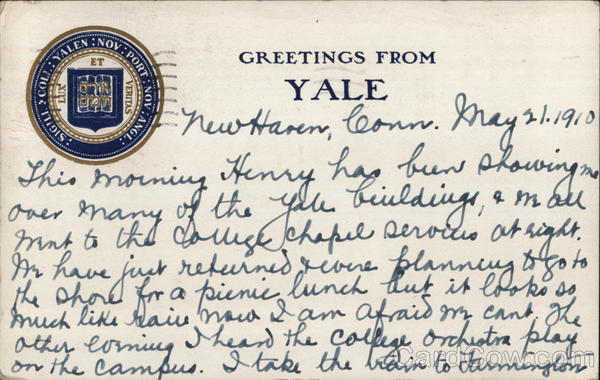 SIGILL · COLL · YALEN · NOV · PORT · NOV · ANGL
ET
LUX
VERITAS
GREETINGS FROM
YALE
New Haven, Conn. May 21. 1910
This morning Henry has been showing me
over many of the Yale buildings, & we all
went to the College chapel services at eight.
We have just returned & were planning to go to
the shore for a picnic lunch but it looks so
much like rain now I am afraid we cant. The
other evening I heard the College Orchestra play
on the campus. I take the train to Farmington
CardCow.com